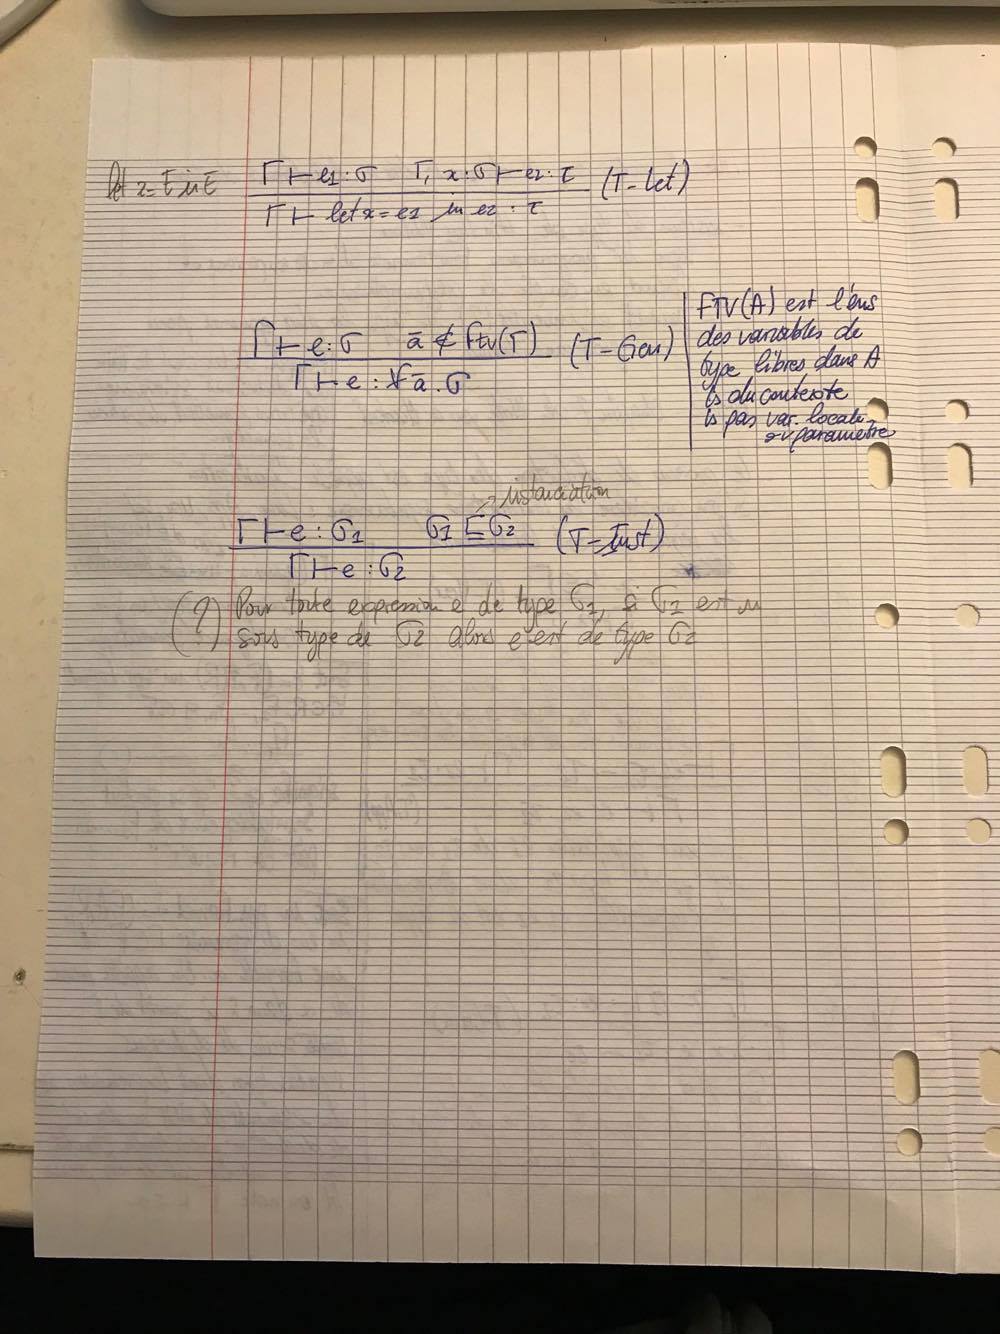 let x = E in E
Γ ⊢ e1 : σ Γ, x : σ ⊢ e2 : τ (T-Let)
Γ ⊢ let x = e1 in e2 : τ
Γ ⊢ e : σ ā ∉ ftv(Γ) (T-Gen)
Γ ⊢ e : ∀ā . σ
FTV(A) est l'ens
des variables de
type libres dans A
↳ du contexte
↳ pas var. locale
ou paramètre
instanciation
Γ ⊢ e : σ1 σ1 ⊑ σ2 (T-Inst)
Γ ⊢ e : σ2
(?) Pour toute expression e de type σ1, si σ1 est un
sous type de σ2 alors e est de type σ2